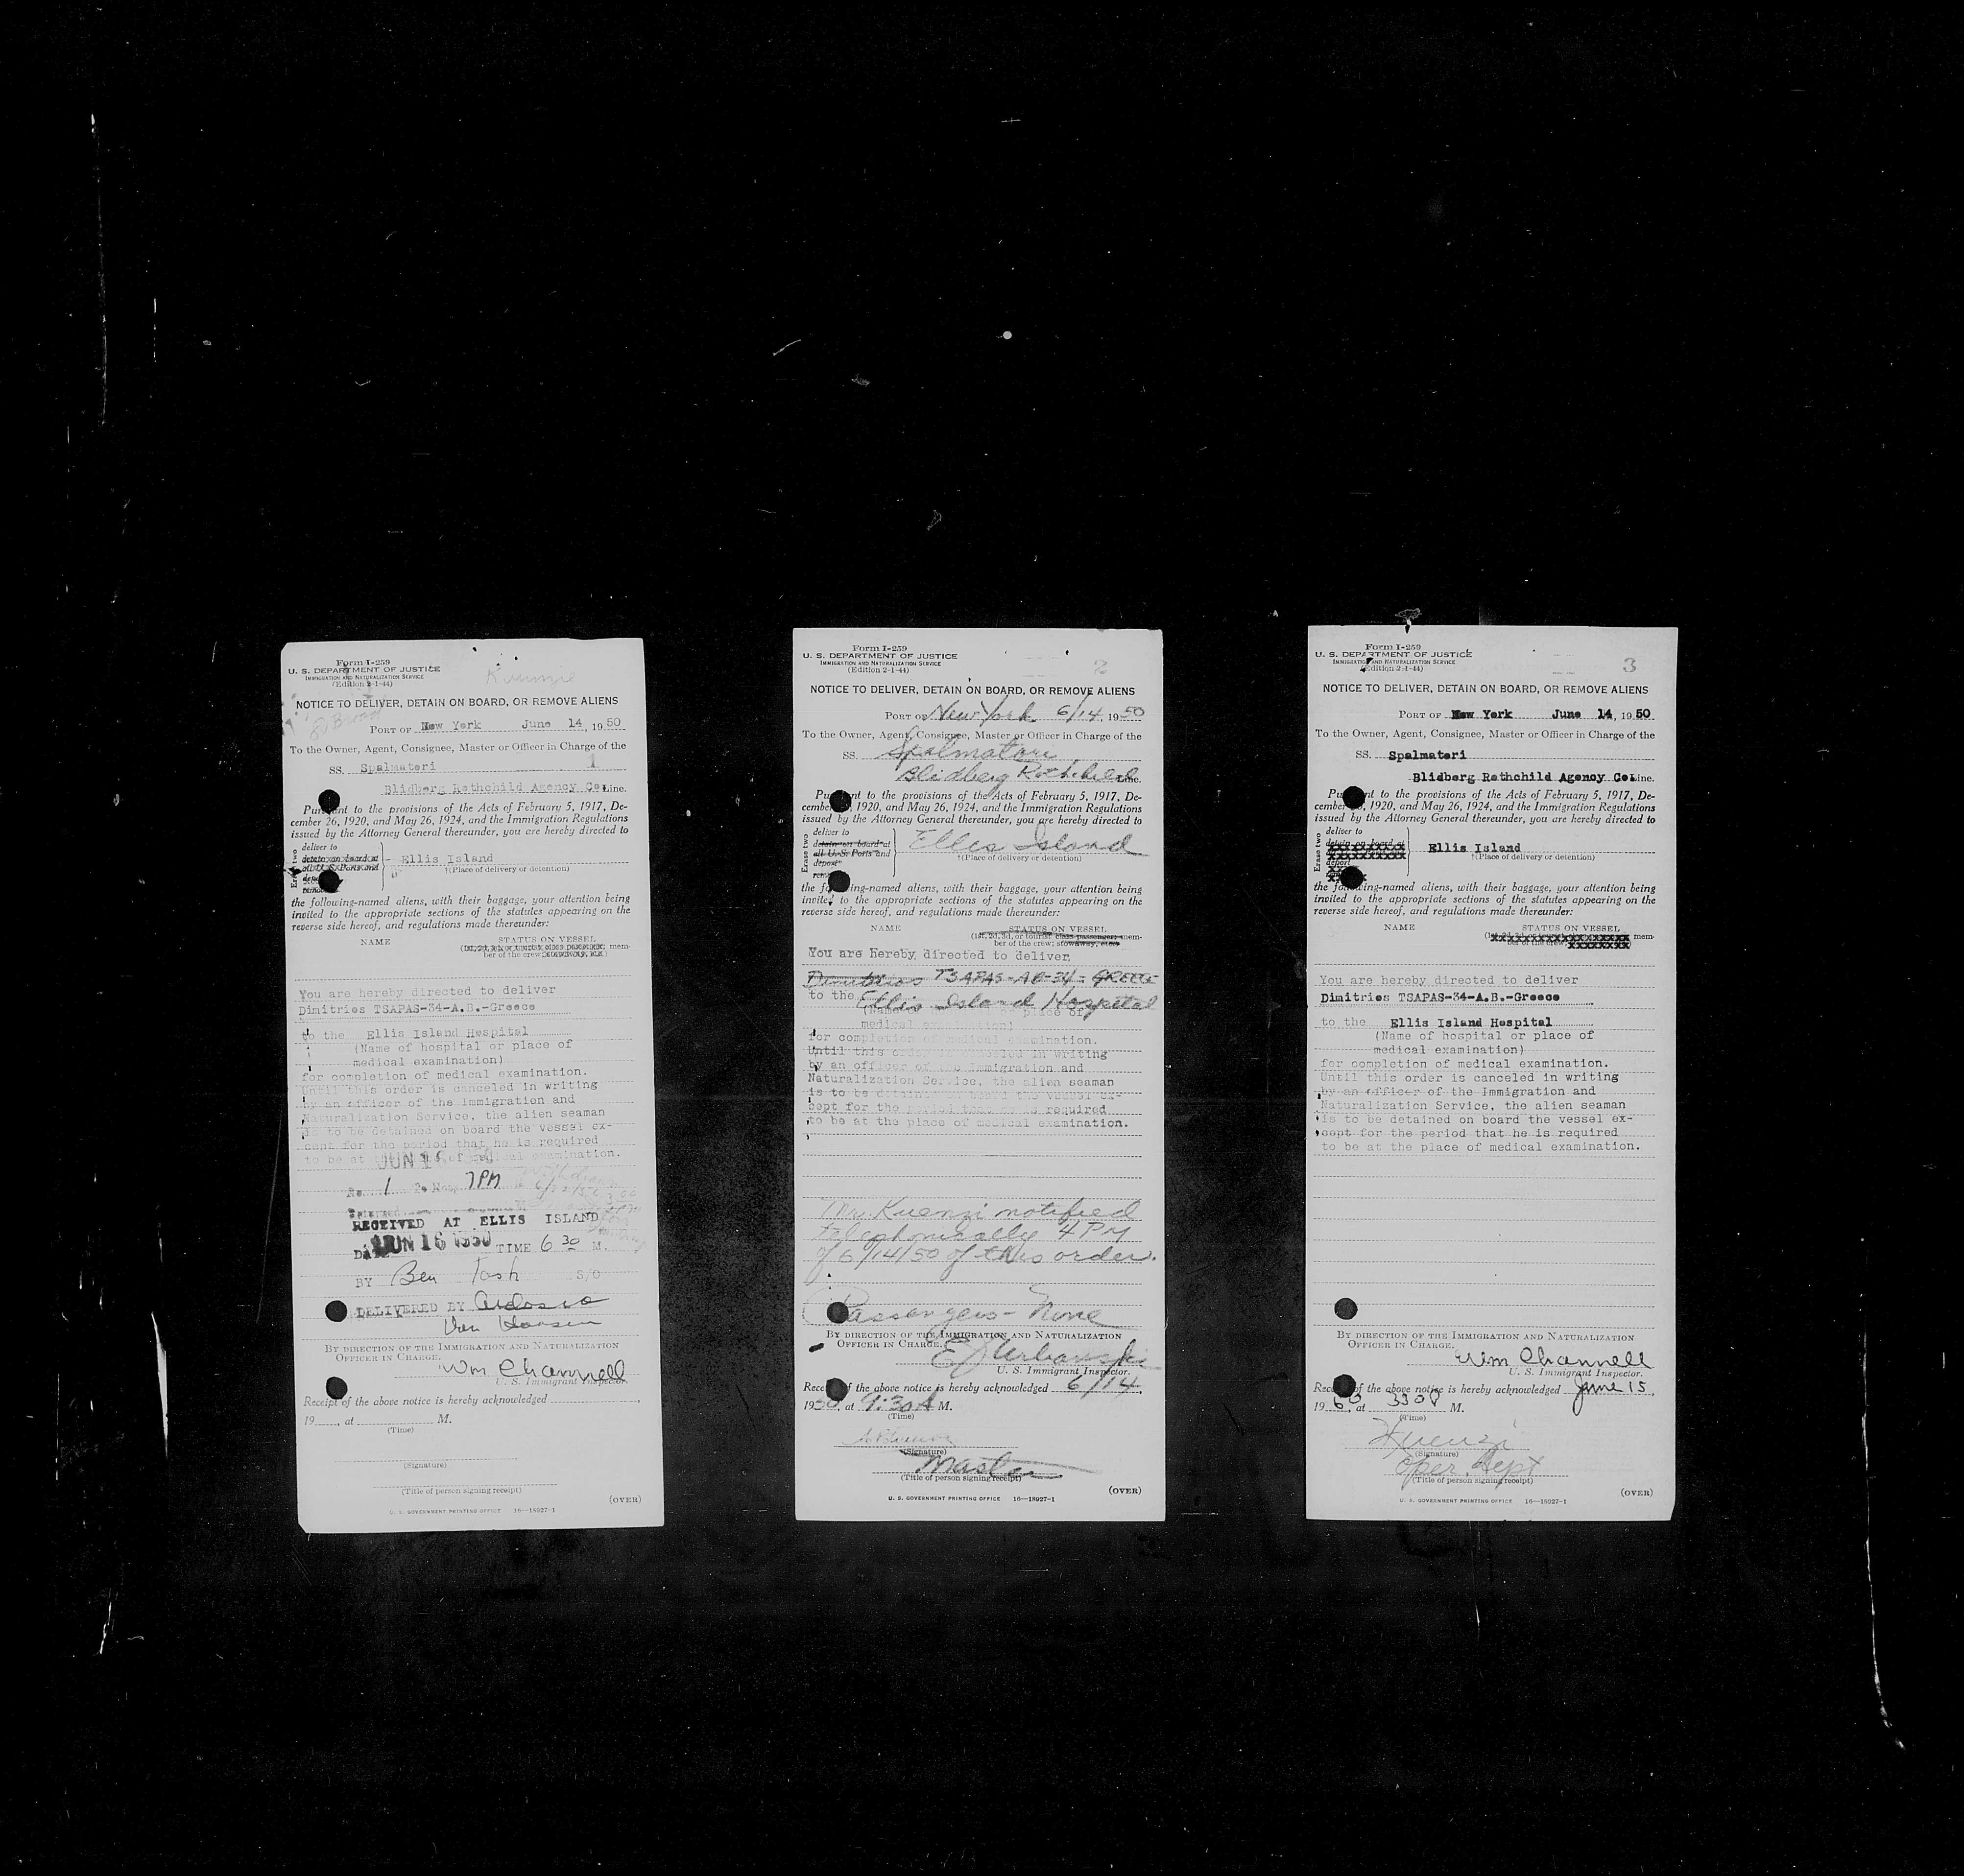 Form I-259
U. S. DEPARTMENT OF JUSTICE
IMMIGRATION AND NATURALIZATION SERVICE
(Edition 2-1-44)
NOTICE TO DELIVER, DETAIN ON BOARD, OR REMOVE ALIENS
PORT OF New York June 14, 1950
To the Owner, Agent, Consignee, Master or Officer in Charge of the
SS. Spalmatori 1
Blidberg Rothchild Agency Co Line.
Pursuant to the provisions of the Acts of February 5, 1917, De-
cember 26, 1920, and May 26, 1924, and the Immigration Regulations
issued by the Attorney General thereunder, you are hereby directed to
Erase two
deliver to
detain on board at
all U. S. Ports and
Ellis Island
†(Place of delivery or detention)
the following-named aliens, with their baggage, your attention being
invited to the appropriate sections of the statutes appearing on the
reverse side hereof, and regulations made thereunder:
NAME STATUS ON VESSEL
mem-
ber of the crew
You are hereby directed to deliver
Dimitries TSAPAS-34-A.B.-Greece
to the Ellis Island Hospital
(Name of hospital or place of
medical examination)
for completion of medical examination.
Until this order is canceled in writing
by an officer of the Immigration and
Naturalization Service, the alien seaman
is to be detained on board the vessel ex-
cept for the period that he is required
to be at place of medical examination.
JUN 16
1 7PM
RECEIVED AT ELLIS ISLAND
DATE JUN 16 1950 TIME 6 30 M.
BY Ben Tosh S/O
DELIVERED BY
Van Hansen
BY DIRECTION OF THE IMMIGRATION AND NATURALIZATION
OFFICER IN CHARGE.
Wm Channell
U. S. Immigrant Inspector.
Receipt of the above notice is hereby acknowledged
19 , at M.
(Time)
(Signature)
(Title of person signing receipt)
(OVER)
U. S. GOVERNMENT PRINTING OFFICE 16—18927-1
Form I-259
U. S. DEPARTMENT OF JUSTICE
IMMIGRATION AND NATURALIZATION SERVICE
(Edition 2-1-44)
2
NOTICE TO DELIVER, DETAIN ON BOARD, OR REMOVE ALIENS
PORT OF New York 6/14, 1950
To the Owner, Agent, Consignee, Master or Officer in Charge of the
SS. Spalmatori
Blidberg Rothchild Line.
Pursuant to the provisions of the Acts of February 5, 1917, De-
cember 26, 1920, and May 26, 1924, and the Immigration Regulations
issued by the Attorney General thereunder, you are hereby directed to
Erase two
deliver to
detain on board at
all U. S. Ports and
deport
remove
Ellis Island
†(Place of delivery or detention)
the following-named aliens, with their baggage, your attention being
invited to the appropriate sections of the statutes appearing on the
reverse side hereof, and regulations made thereunder:
NAME STATUS ON VESSEL
(1st, 2d, 3d, or tourist class passenger; mem-
ber of the crew; stowaway, etc.)
You are hereby directed to deliver
Dimitrios TSAPAS-AB-34-GREECE
to the Ellis Island Hospital
(Name of place of
medical examination)
for completion of medical examination.
Until this order is canceled in writing
by an officer of the Immigration and
Naturalization Service, the alien seaman
is to be detained on board the vessel ex-
cept for the period that he is required
to be at the place of medical examination.
Mr. Kuenzi notified
telephonically 4 PM
of 6/14/50 of this order.
Passengers - None
BY DIRECTION OF THE IMMIGRATION AND NATURALIZATION
OFFICER IN CHARGE.
E J Urbanski
U. S. Immigrant Inspector.
Receipt of the above notice is hereby acknowledged 6/14,
1950, at 9:30 A M.
(Time)
(Signature)
Master
(Title of person signing receipt)
(OVER)
U. S. GOVERNMENT PRINTING OFFICE 16—18927-1
Form I-259
U. S. DEPARTMENT OF JUSTICE
IMMIGRATION AND NATURALIZATION SERVICE
(Edition 2-1-44)
3
NOTICE TO DELIVER, DETAIN ON BOARD, OR REMOVE ALIENS
PORT OF New York June 14, 1950
To the Owner, Agent, Consignee, Master or Officer in Charge of the
SS. Spalmatori
Blidberg Rothchild Agency Co Line.
Pursuant to the provisions of the Acts of February 5, 1917, De-
cember 26, 1920, and May 26, 1924, and the Immigration Regulations
issued by the Attorney General thereunder, you are hereby directed to
Erase two
deliver to
detain on board at
deport
Ellis Island
†(Place of delivery or detention)
the following-named aliens, with their baggage, your attention being
invited to the appropriate sections of the statutes appearing on the
reverse side hereof, and regulations made thereunder:
NAME STATUS ON VESSEL
mem-
ber of the crew
You are hereby directed to deliver
Dimitries TSAPAS-34-A.B.-Greece
to the Ellis Island Hospital
(Name of hospital or place of
medical examination)
for completion of medical examination.
Until this order is canceled in writing
by an officer of the Immigration and
Naturalization Service, the alien seaman
is to be detained on board the vessel ex-
cept for the period that he is required
to be at the place of medical examination.
BY DIRECTION OF THE IMMIGRATION AND NATURALIZATION
OFFICER IN CHARGE.
Wm Channell
U. S. Immigrant Inspector.
Receipt of the above notice is hereby acknowledged June 15,
1950, at 330P M.
(Time)
Kuenzi
(Signature)
Oper. Dept
(Title of person signing receipt)
(OVER)
U. S. GOVERNMENT PRINTING OFFICE 16—18927-1